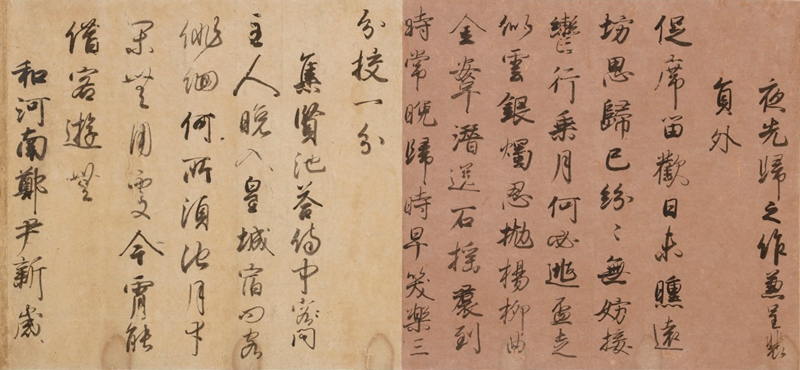 夜先歸之作兼呈裴
員外
促席留歡日未曛遠
坊思歸已紛〻無妨按
轡行乘月何必逃盃走
似雲銀燭忍抛楊柳曲
金鞍潛送石榴裙到
時常晚歸時早笑樂三
分挍一分
集賢池荅侍中問
主人晚入皇城宿問客
俳佪何所須池月幸
閑無用處今宵能
借客遊無
和河南鄭尹新歲